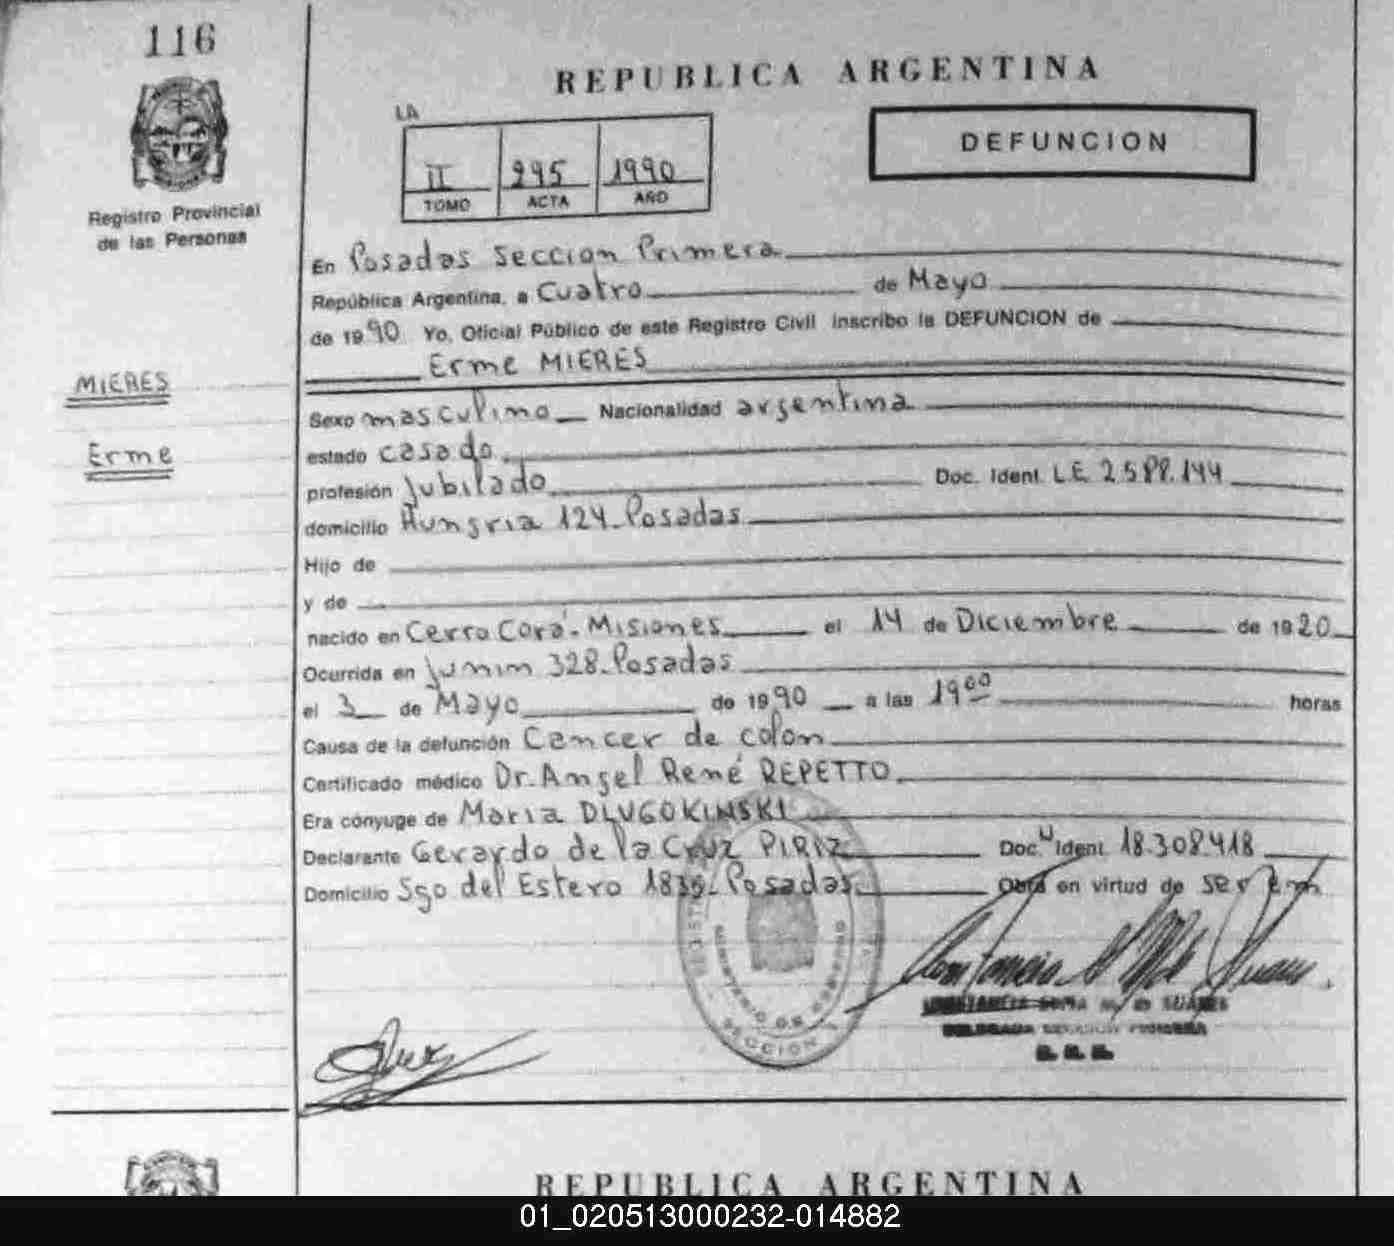 116
REPUBLICA ARGENTINA
LA
II 295 1990
TOMO ACTA AÑO
DEFUNCION
Registro Provincial
de las Personas
En Posadas Seccion Primera
República Argentina, a Cuatro de Mayo
de 1990 Yo, Oficial Público de este Registro Civil inscribo la DEFUNCION de
Erme MIERES
MIERES
Erme
Sexo masculino Nacionalidad argentina
estado casado
profesión Jubilado Doc. Ident. L.E. 2.588.144
domicilio Hungria 124-Posadas
Hijo de
y de
nacido en Cerro Corá-Misiones el 14 de Diciembre de 1920
Ocurrida en Junin 328-Posadas
el 3 de Mayo de 1990 a las 19 00 horas
Causa de la defunción Cancer de colon
Certificado médico Dr. Angel René REPETTO
Era cónyuge de Maria DLUGOKINSKI
Declarante Gerardo de la Cruz PIRIZ Doc. U Ident. 18.308.418
Domicilio Sgo del Estero 1835-Posadas Obra en virtud de ser
MINISTERIO DE GOBIERNO
SECCION 1
SUARES
DELEGADA SECCION PRIMERA
REPUBLICA ARGENTINA
01_020513000232-014882